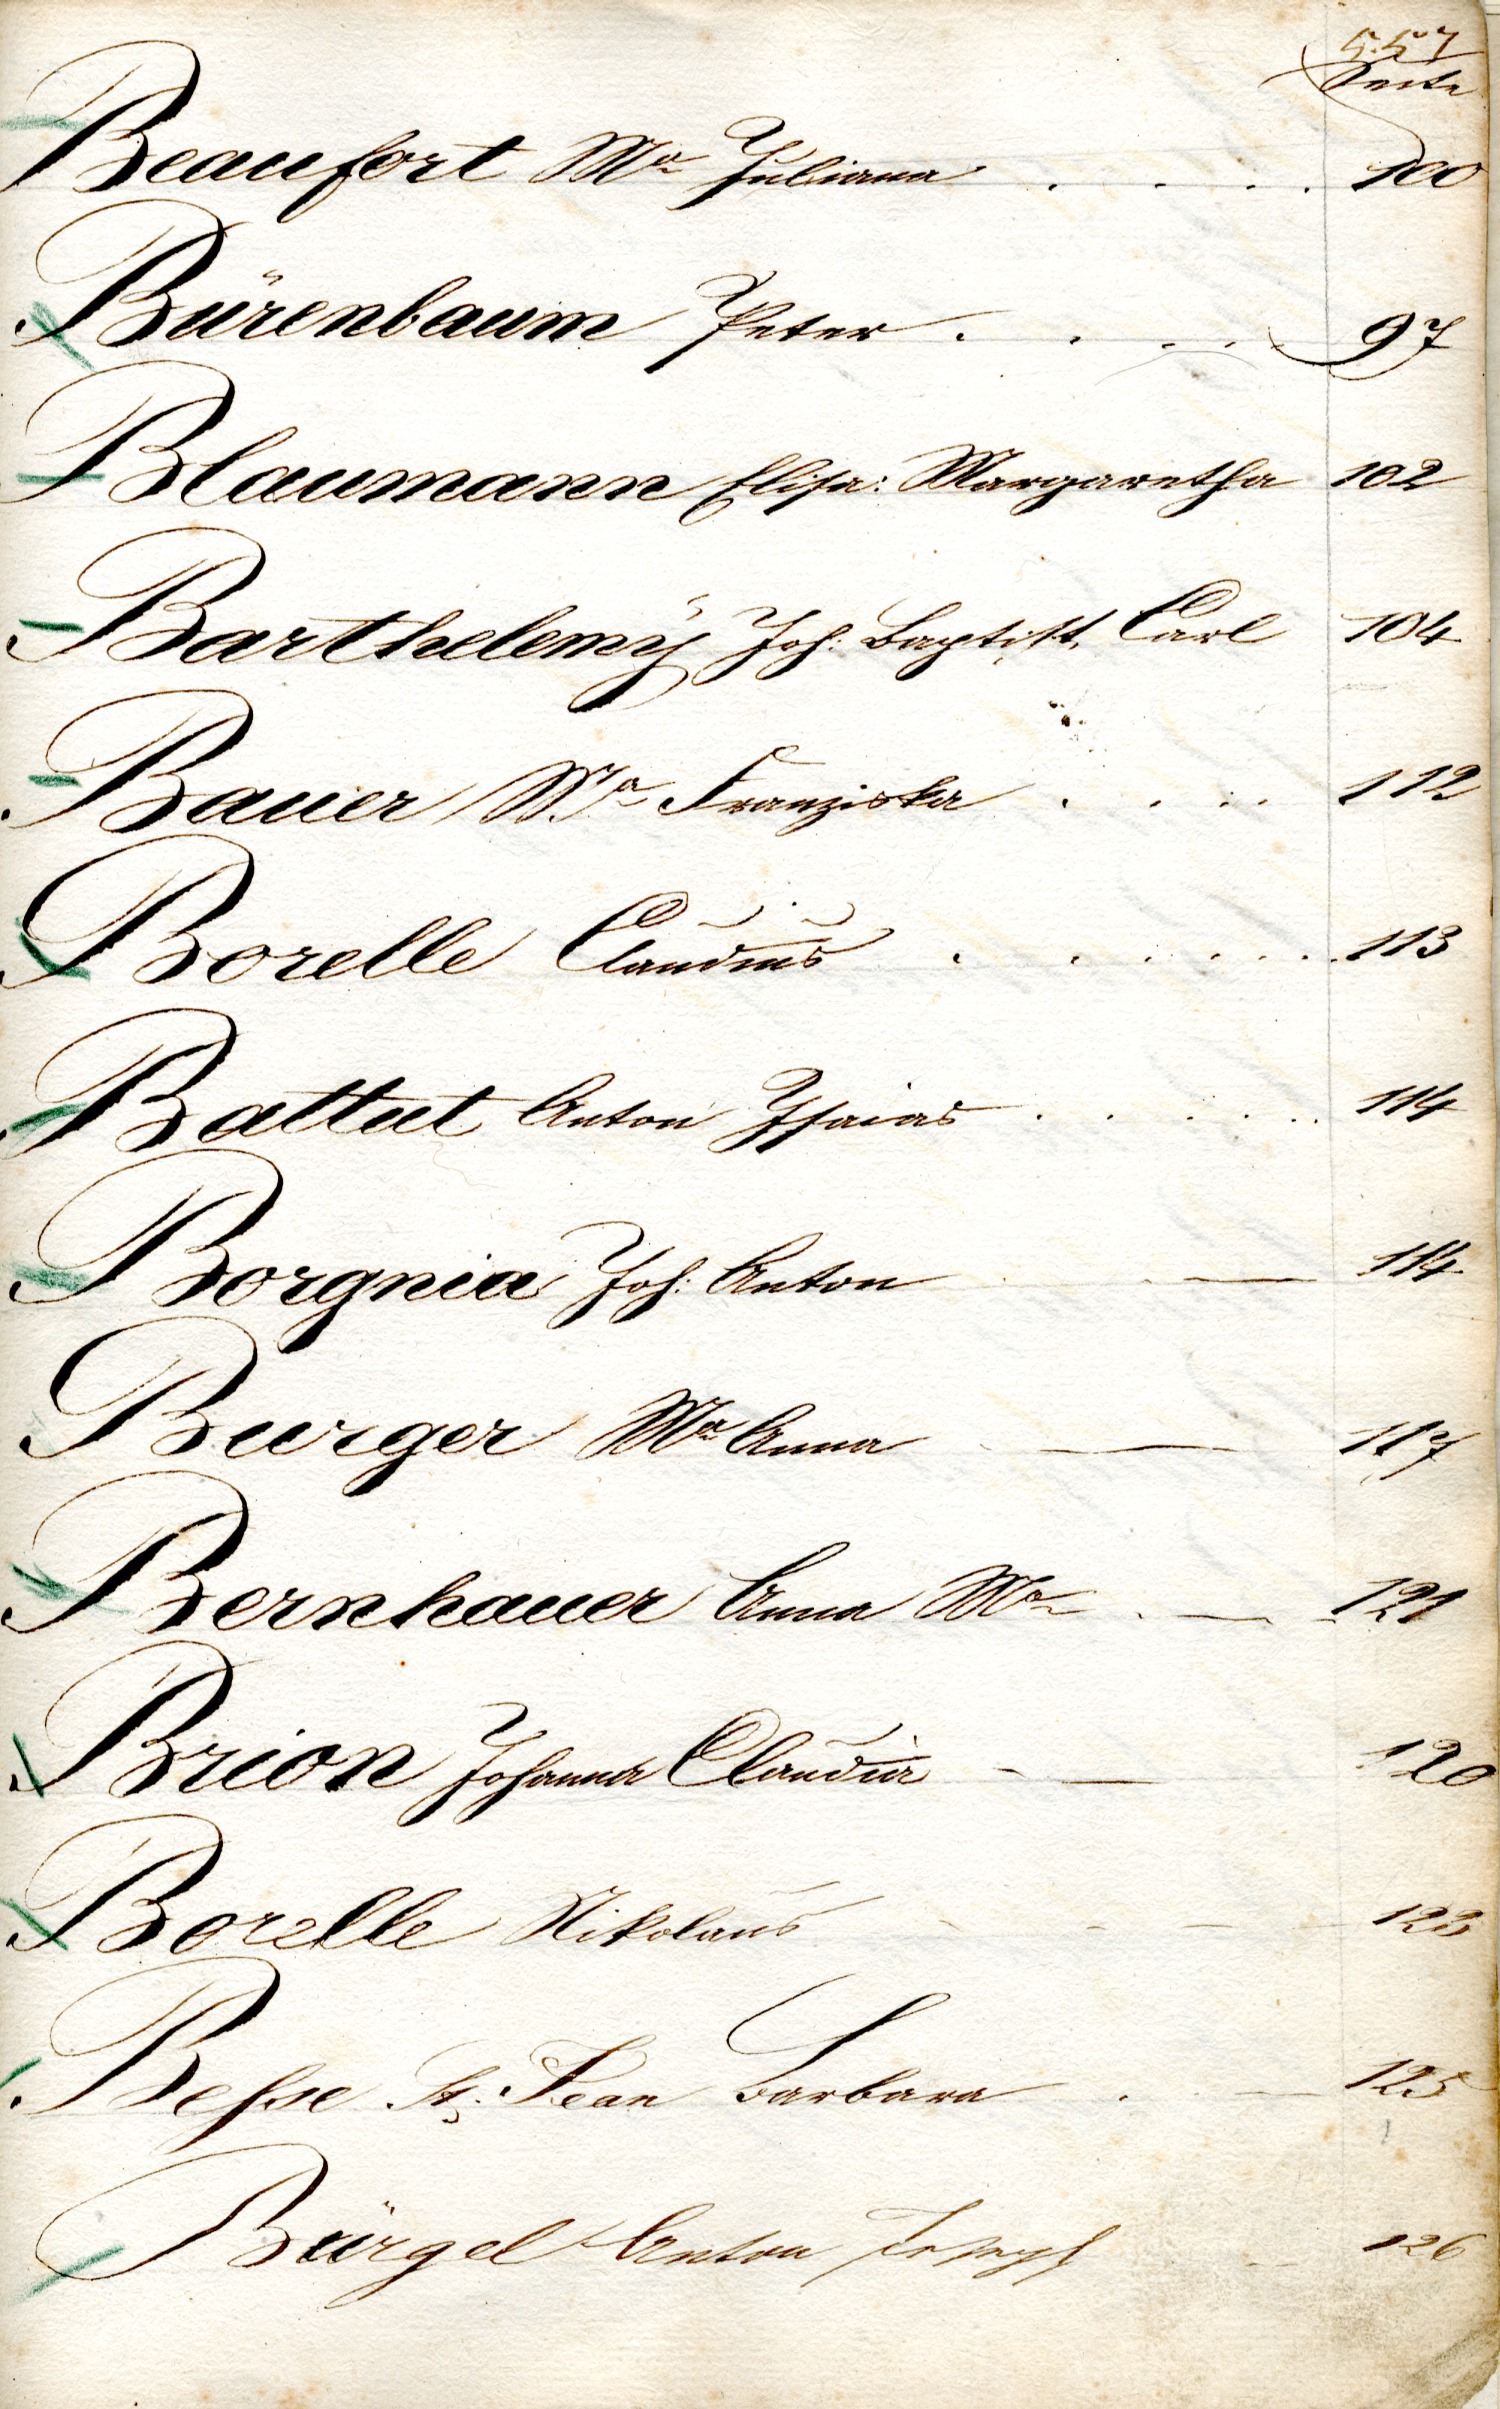 557
Seite
Beaufort Mª Juliana . . . . 100
Bürenbaum Peter . . . . . 97
Blaumann Elisa: Margaretha 102
Barthelemÿ Joh: Baptist, Carl 104
Bauer Mª Franziska . . . . 112
Borelle Claudius . . . . . . . 113
Battut Anton Isaias . . . . . 114
Borgnia Joh: Anton — 114
Burger Mª Anna — 117
Bernhauer Anna Mª . — 121
Brion Johanna Claudia - — 120
Borelle Nikolaus - - - 123
Besse St. Jean Barbara . — 125
Bürgel Anton Joseph - 126